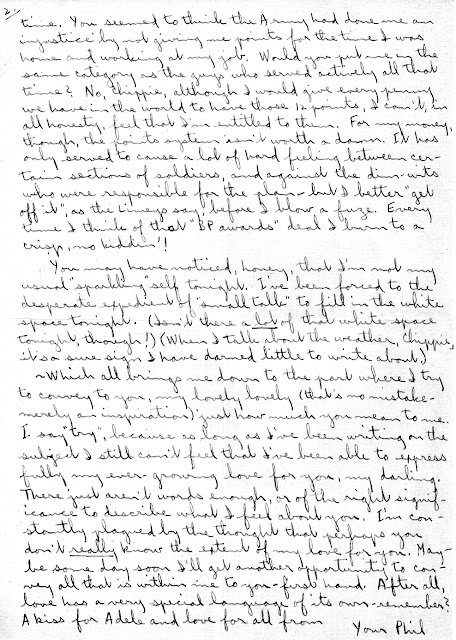 2.
time. You seemed to think the Army had done me an
injustice by not giving me points for the time I was
home and working at my job. Would you put me in the
same category as the guys who served actively all that
time? No, Chippie, although I would give every penny
we have in the world to have those 12 points, I can't, in
all honesty, feel that I'm entitled to them. For my money,
though, the points system isn't worth a damn. It has
only served to cause a lot of hard feeling between cer-
tain sections of soldiers, and against the dim-wits
who were responsible for the plan - but I better "get
off it", as the Limeys say, before I blow a fuze. Every
time I think of that "BP awards" deal I burn to a
crisp, no kiddin'!
You may have noticed, honey, that I'm not my
usual "sparkling" self tonight. I've been forced to the
desperate expedient of "small talk" to fill in the white
space tonight. (Isn't there a lot of that white space
tonight, though!) (When I talk about the weather, Chippie,
it's a sure sign I have darned little to write about.)
~Which all brings me down to the part where I try
to convey to you, my lovely lovely (that's no mistake-
merely an inspiration) just how much you mean to me.
I say "try", because as long as I've been writing on the
subject I still can't feel that I've been able to express
fully my ever-growing love for you, my darling.
There just aren't words enough, or of the right signif-
icance to describe what I feel about you. I'm con-
stantly plagued by the thought that perhaps you
don't really know the extent of my love for you. May-
be some day soon I'll get another opportunity to con-
vey all that is within me to you - first hand. After all,
love has a very special language of its own - remember?
A kiss for Adele and love for all from
Your Phil